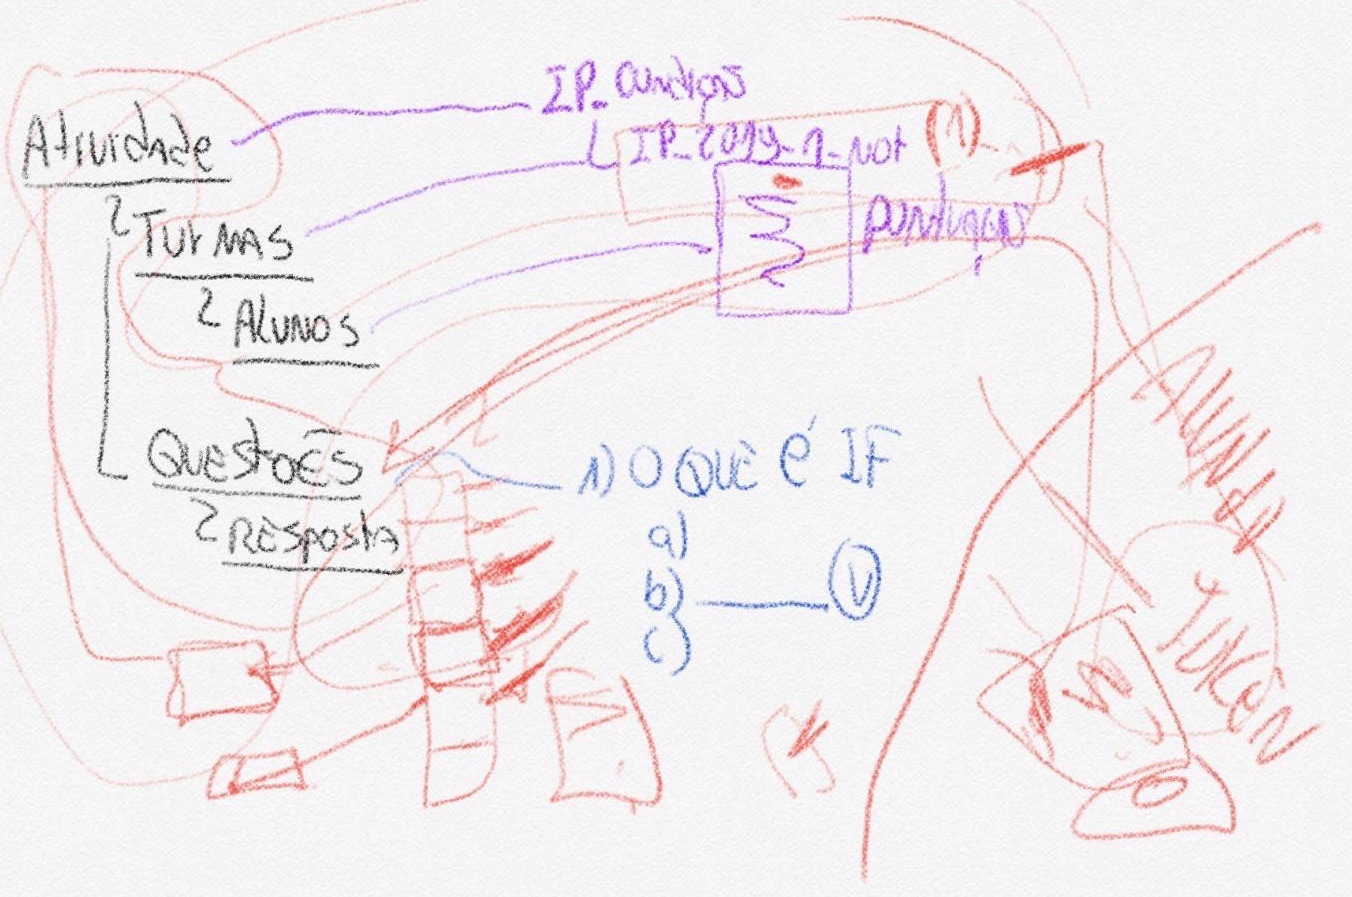 Atividade
Turmas
Alunos
Questões
Resposta
IP_2019_1_Not
(1)
Pontuação
1) O QUE É IF
a)
b)
V
c)
Aluno
Token